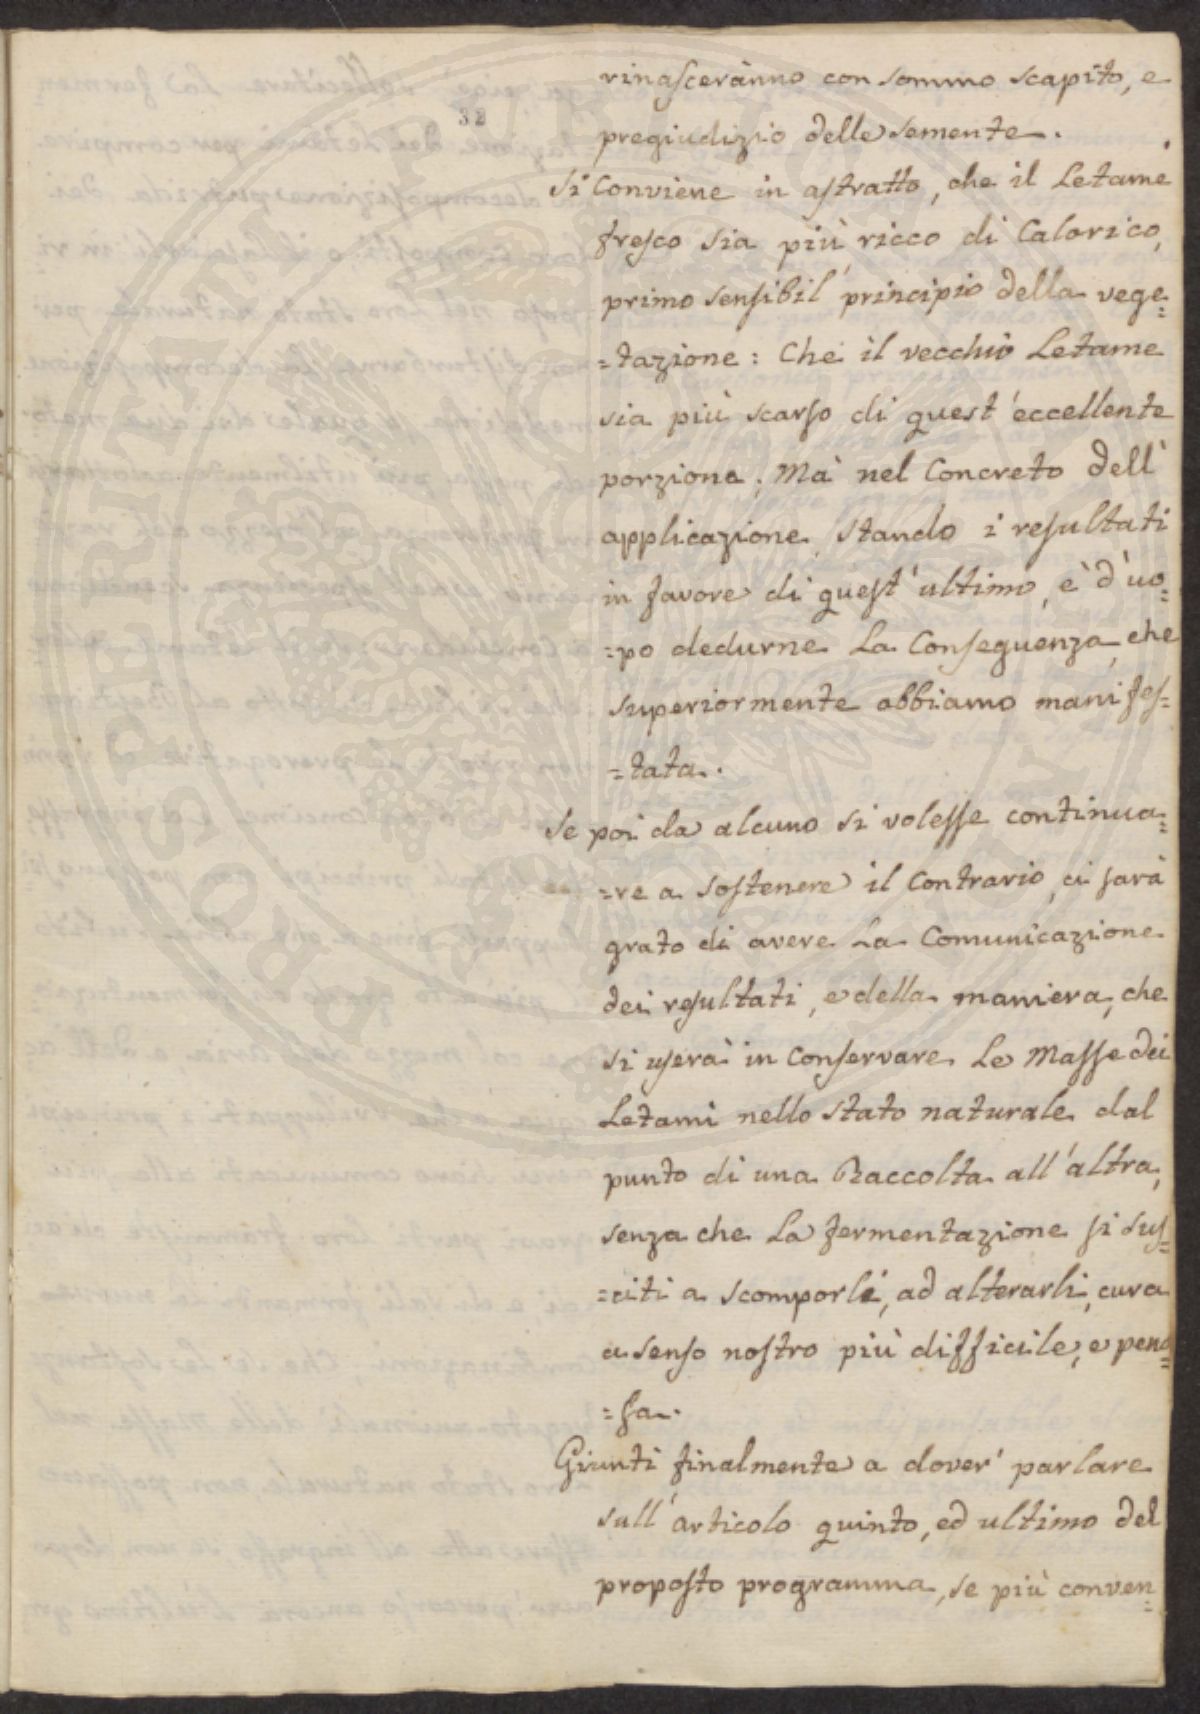 32
rinasceranno con sommo scapito, e
pregiudizio delle semente.
Si Conviene in astratto, che il Letame
fresco sia più ricco di Calorico,
primo sensibil' principio della vege=
=tazione: Che il vecchio Letame
sia più scarso di quest'eccellente
porzione; Mà nel Concreto dell'
applicazione, stando i resultati
in favore di quest'ultimo, è d'uo=
=po dedurne La Conseguenza, che
superiormente abbiamo manifes=
=tata.
Se poi da alcuno si volesse continua=
=re a sostenere il Contrario, ci sarà
grato di avere La Comunicazione
dei resultati, e della maniera, che
si userà in Conservare Le Masse dei
Letami nello stato naturale dal
punto di una Raccolta all'altra,
senza che La fermentazione si sus=
=citi a scomporli, ad alterarli, cura
a senso nostro più difficile, e peno=
=sa.
Giunti finalmente a dover' parlare
sull'articolo quinto, ed ultimo del
proposto programma, se più conven=